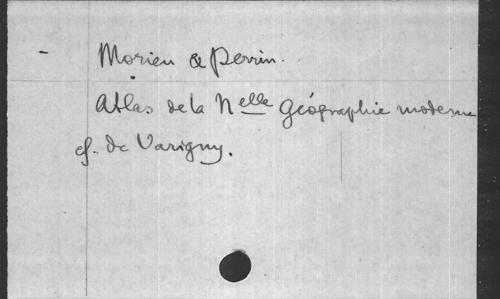 - Morieu & Perrin.
Atlas de la Nelle Géographie moderne
cf. de Varigny.